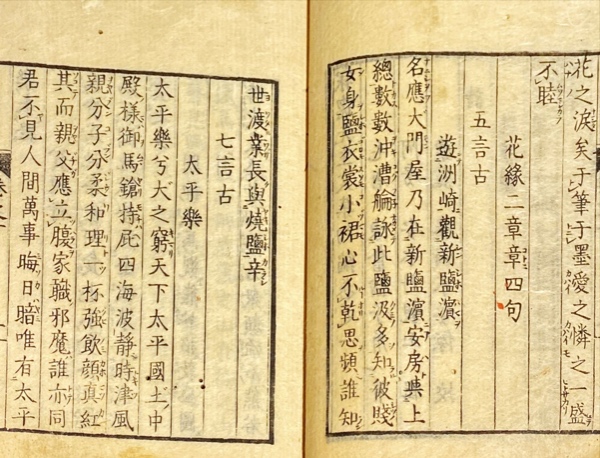 花之淚矣于筆于墨愛之憐之一盛
不睦
花緣二章章四句
五言古
遊洲崎觀新鹽濵
名應大門屋乃在新鹽濵安房典上
總數數沖漕艫詠此鹽汲多知彼賤
女身鹽衣裳小裙心不乾思煩誰知
世渡業長與燒鹽辛
七言古
太平樂
太平樂兮大之窮天下太平國土中
殿樣御馬鎗捺庇四海波靜時津風
親分子分柔和理一杯強飲顔真紅
其而親父應立腹家職邪魔誰亦同
君不見人間萬事晦日暗唯有太平